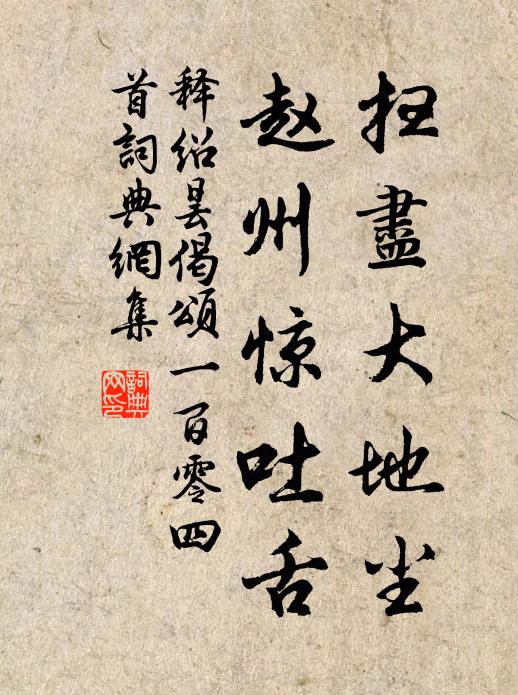 扫盡大地尘
赵州惊吐舌
释绍昙偈頌一百零四
首詞典網集
詞典网印